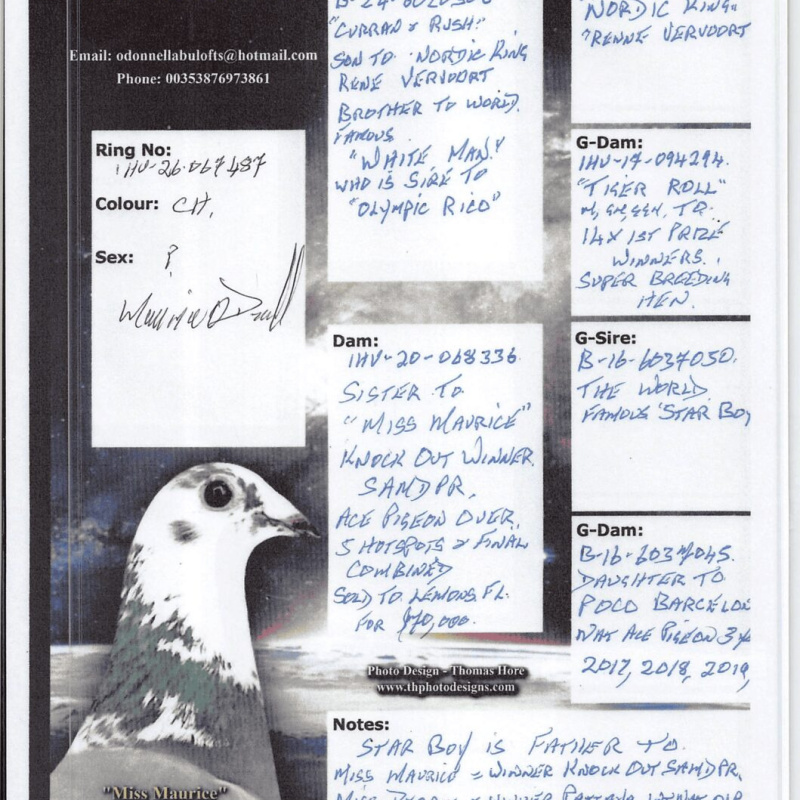 Email: odonnellabulofts@hotmail.com
Phone: 00353876973861
Ring No:
IHU-26-067487
Colour: CH.
Sex: ?
"CURRAN & RUSH"
SON TO NORDIC KING
RENE VERVOORT
BROTHER TO WORLD
FAMOUS
"WHITE MAN"
WHO IS SIRE TO
"OLYMPIC RICO"
Dam:
IHU-20-068336
SISTER TO
"MISS MAURICE"
KNOCK OUT WINNER
SAMDPR,
ACE PIGEON OVER
5 HOTSPOTS & FINAL
COMBINED
SOLD TO LEMONS. FL.
FOR $70,000.
"NORDIC KING"
"RENNE VERVOORT
G-Dam:
IHU-17-094294.
"TIGER ROLL"
M, GM, GGM, TO
14X 1ST PRIZE
WINNERS.
SUPER BREEDING
HEN.
G-Sire:
B-16-6037050.
THE WORLD
FAMOUS 'STAR BOY
G-Dam:
DAUGHTER TO
POCO BARCELON
NAT ACE PIGEON 3X
2017, 2018, 2019,
Photo Design - Thomas Hore
www.thphotodesigns.com
Notes:
STAR BOY IS FATHER TO.
MISS MAURICE = WINNER KNOCK OUT SAMDPR.
"Miss Maurice"